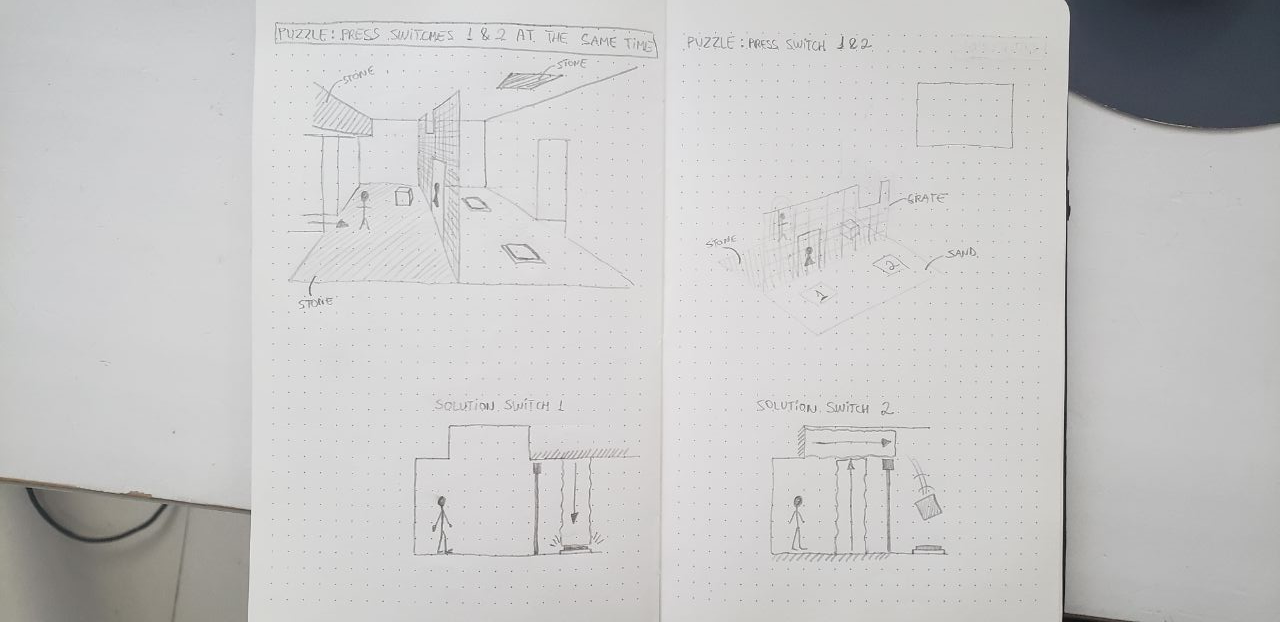 PUZZLE: PRESS SWITCHES 1 & 2 AT THE SAME TIME
STONE
STONE
STONE
SOLUTION SWITCH 1
PUZZLE: PRESS SWITCH 1&2
GRATE
STONE
SAND
2
1
SOLUTION SWITCH 2